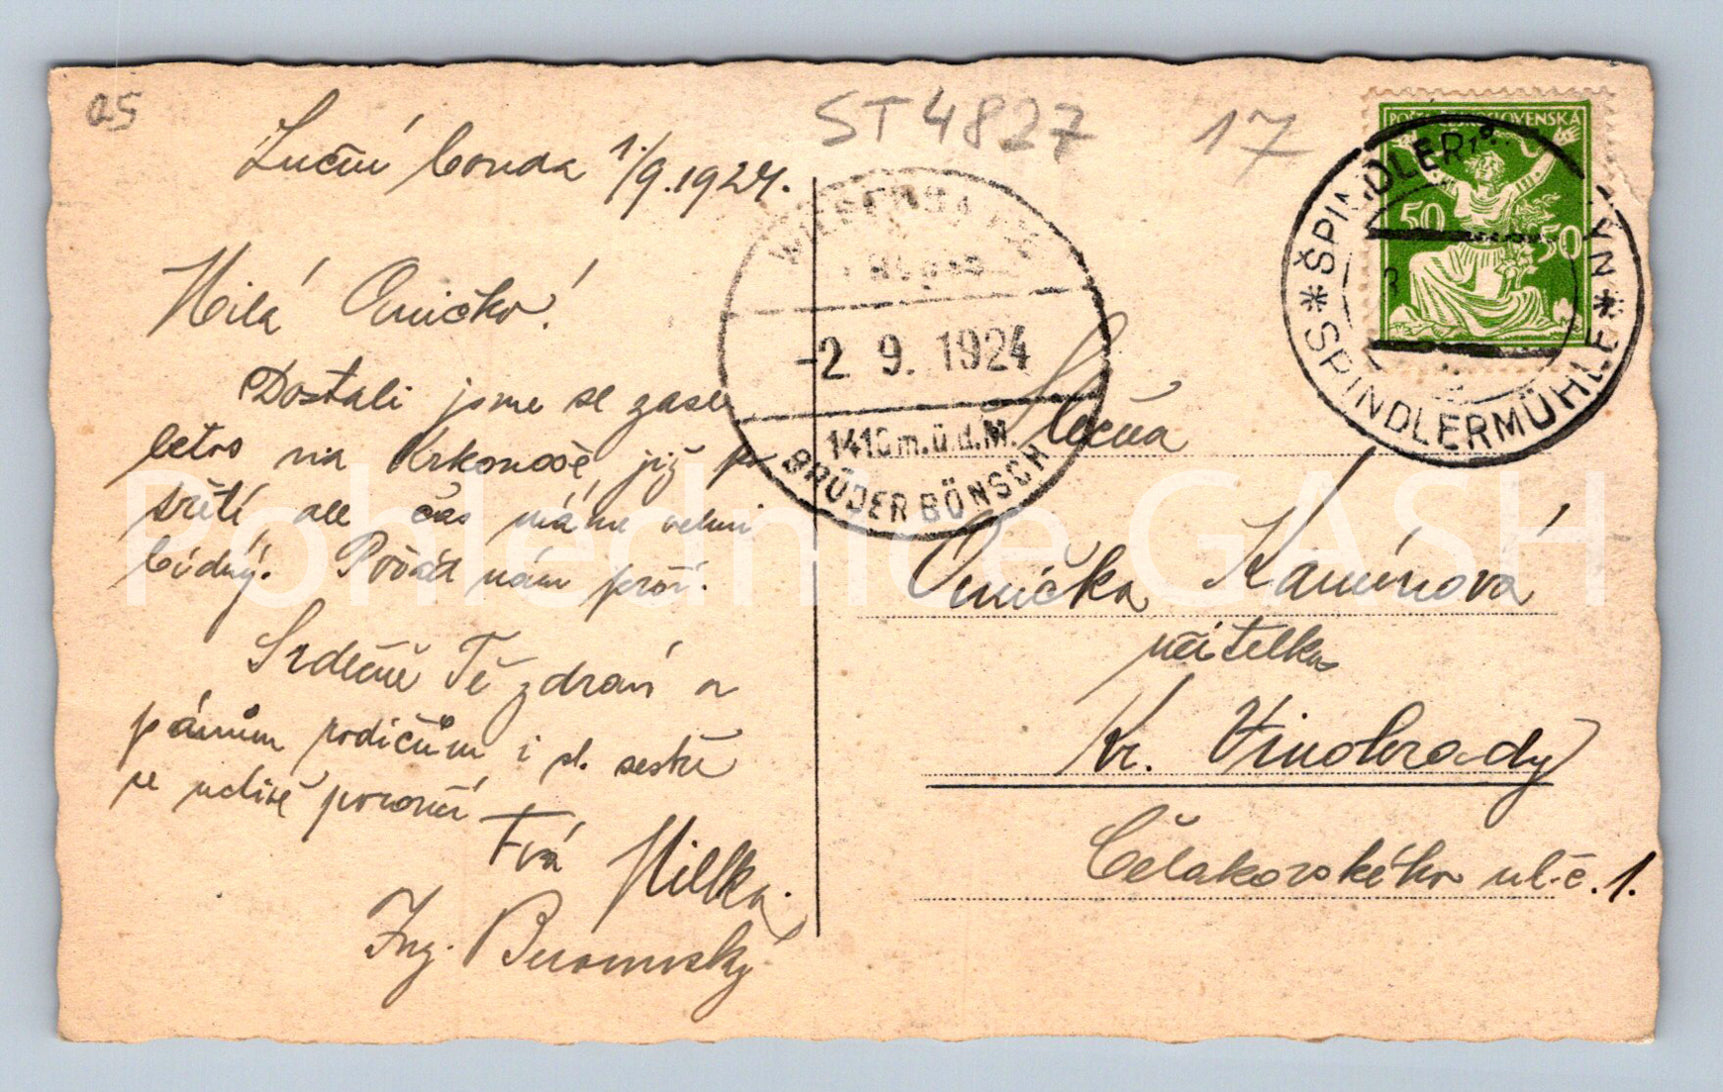 25
ST 4827
17
Luční bouda 1./9. 1924.
Milá Aničko!
Dostali jsme se zase
letos na Krkonoše, již po
třetí, ale čas máme velmi
bídný. Pořád nám prší.
Srdečně Tě zdraví a
pánům rodičům i sl. sestře
se uctivě poroučí
Tvá Milka.
Ing.
WIESENBAUDE
-2 9. 1924
1410 m.ü.d.M.
BRÜDER BÖNSCH
POŠTA ČESKOSLOVENSKÁ
50 50
ŠPINDLERŮV MLÝN
* SPINDLERMÜHLE *
Slečna
Anička Kamínová
učitelka
Kr. Vinohrady
Čelakovského ul. č. 1.
Pohlednice GASH